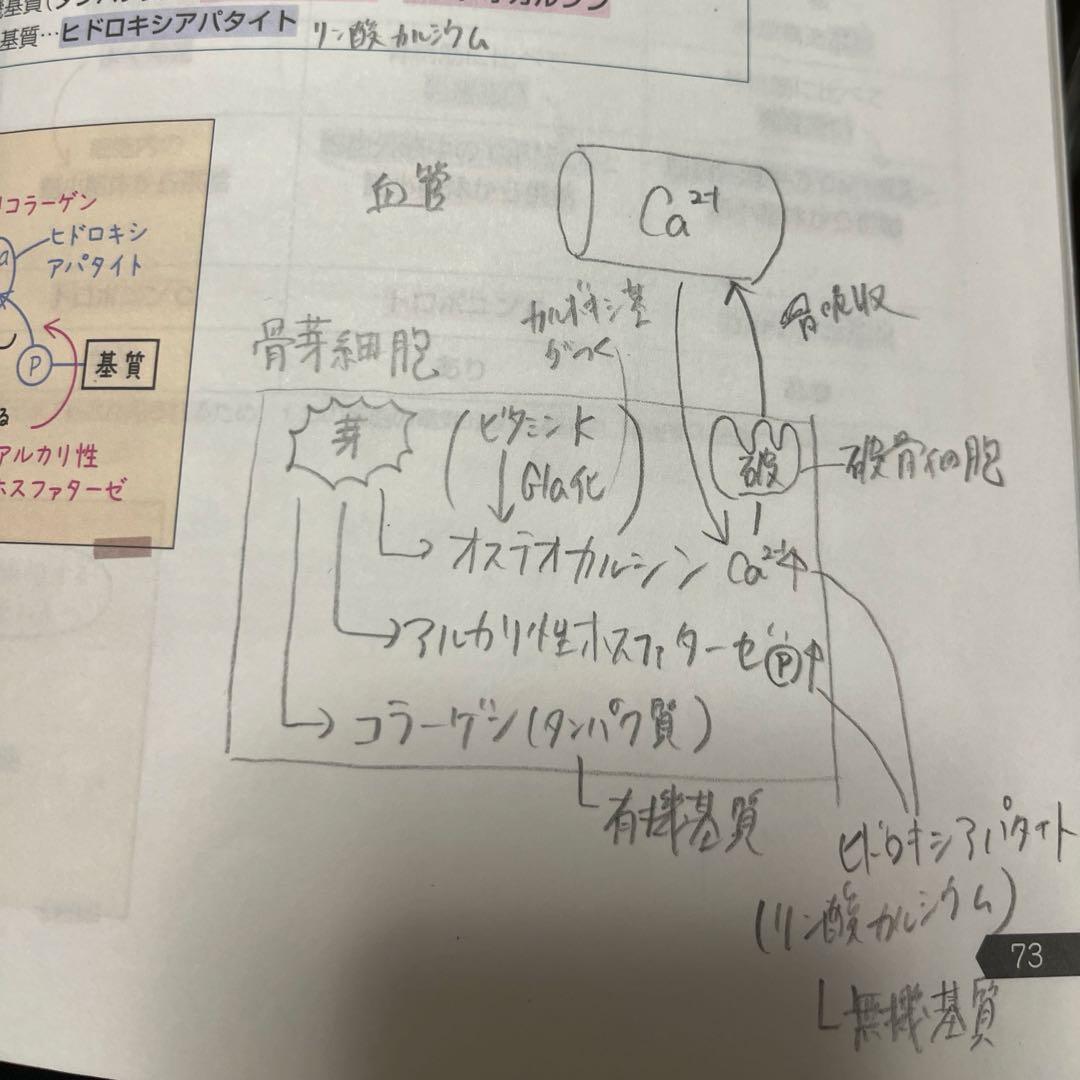 基質…ヒドロキシアパタイト リン酸カルシウム
コラーゲン
ヒドロキシ
アパタイト
P
基質
る
アルカリ性
ホスファターゼ
血管
Ca²⁺
カルボキシ基
がつく
骨吸収
骨芽細胞
芽
ビタミンK
Gla化
破
破骨細胞
オステオカルシン Ca²⁺↑
アルカリ性ホスファターゼ P↑
コラーゲン(タンパク質)
有機基質
ヒドロキシアパタイト
(リン酸カルシウム)
73
無機基質